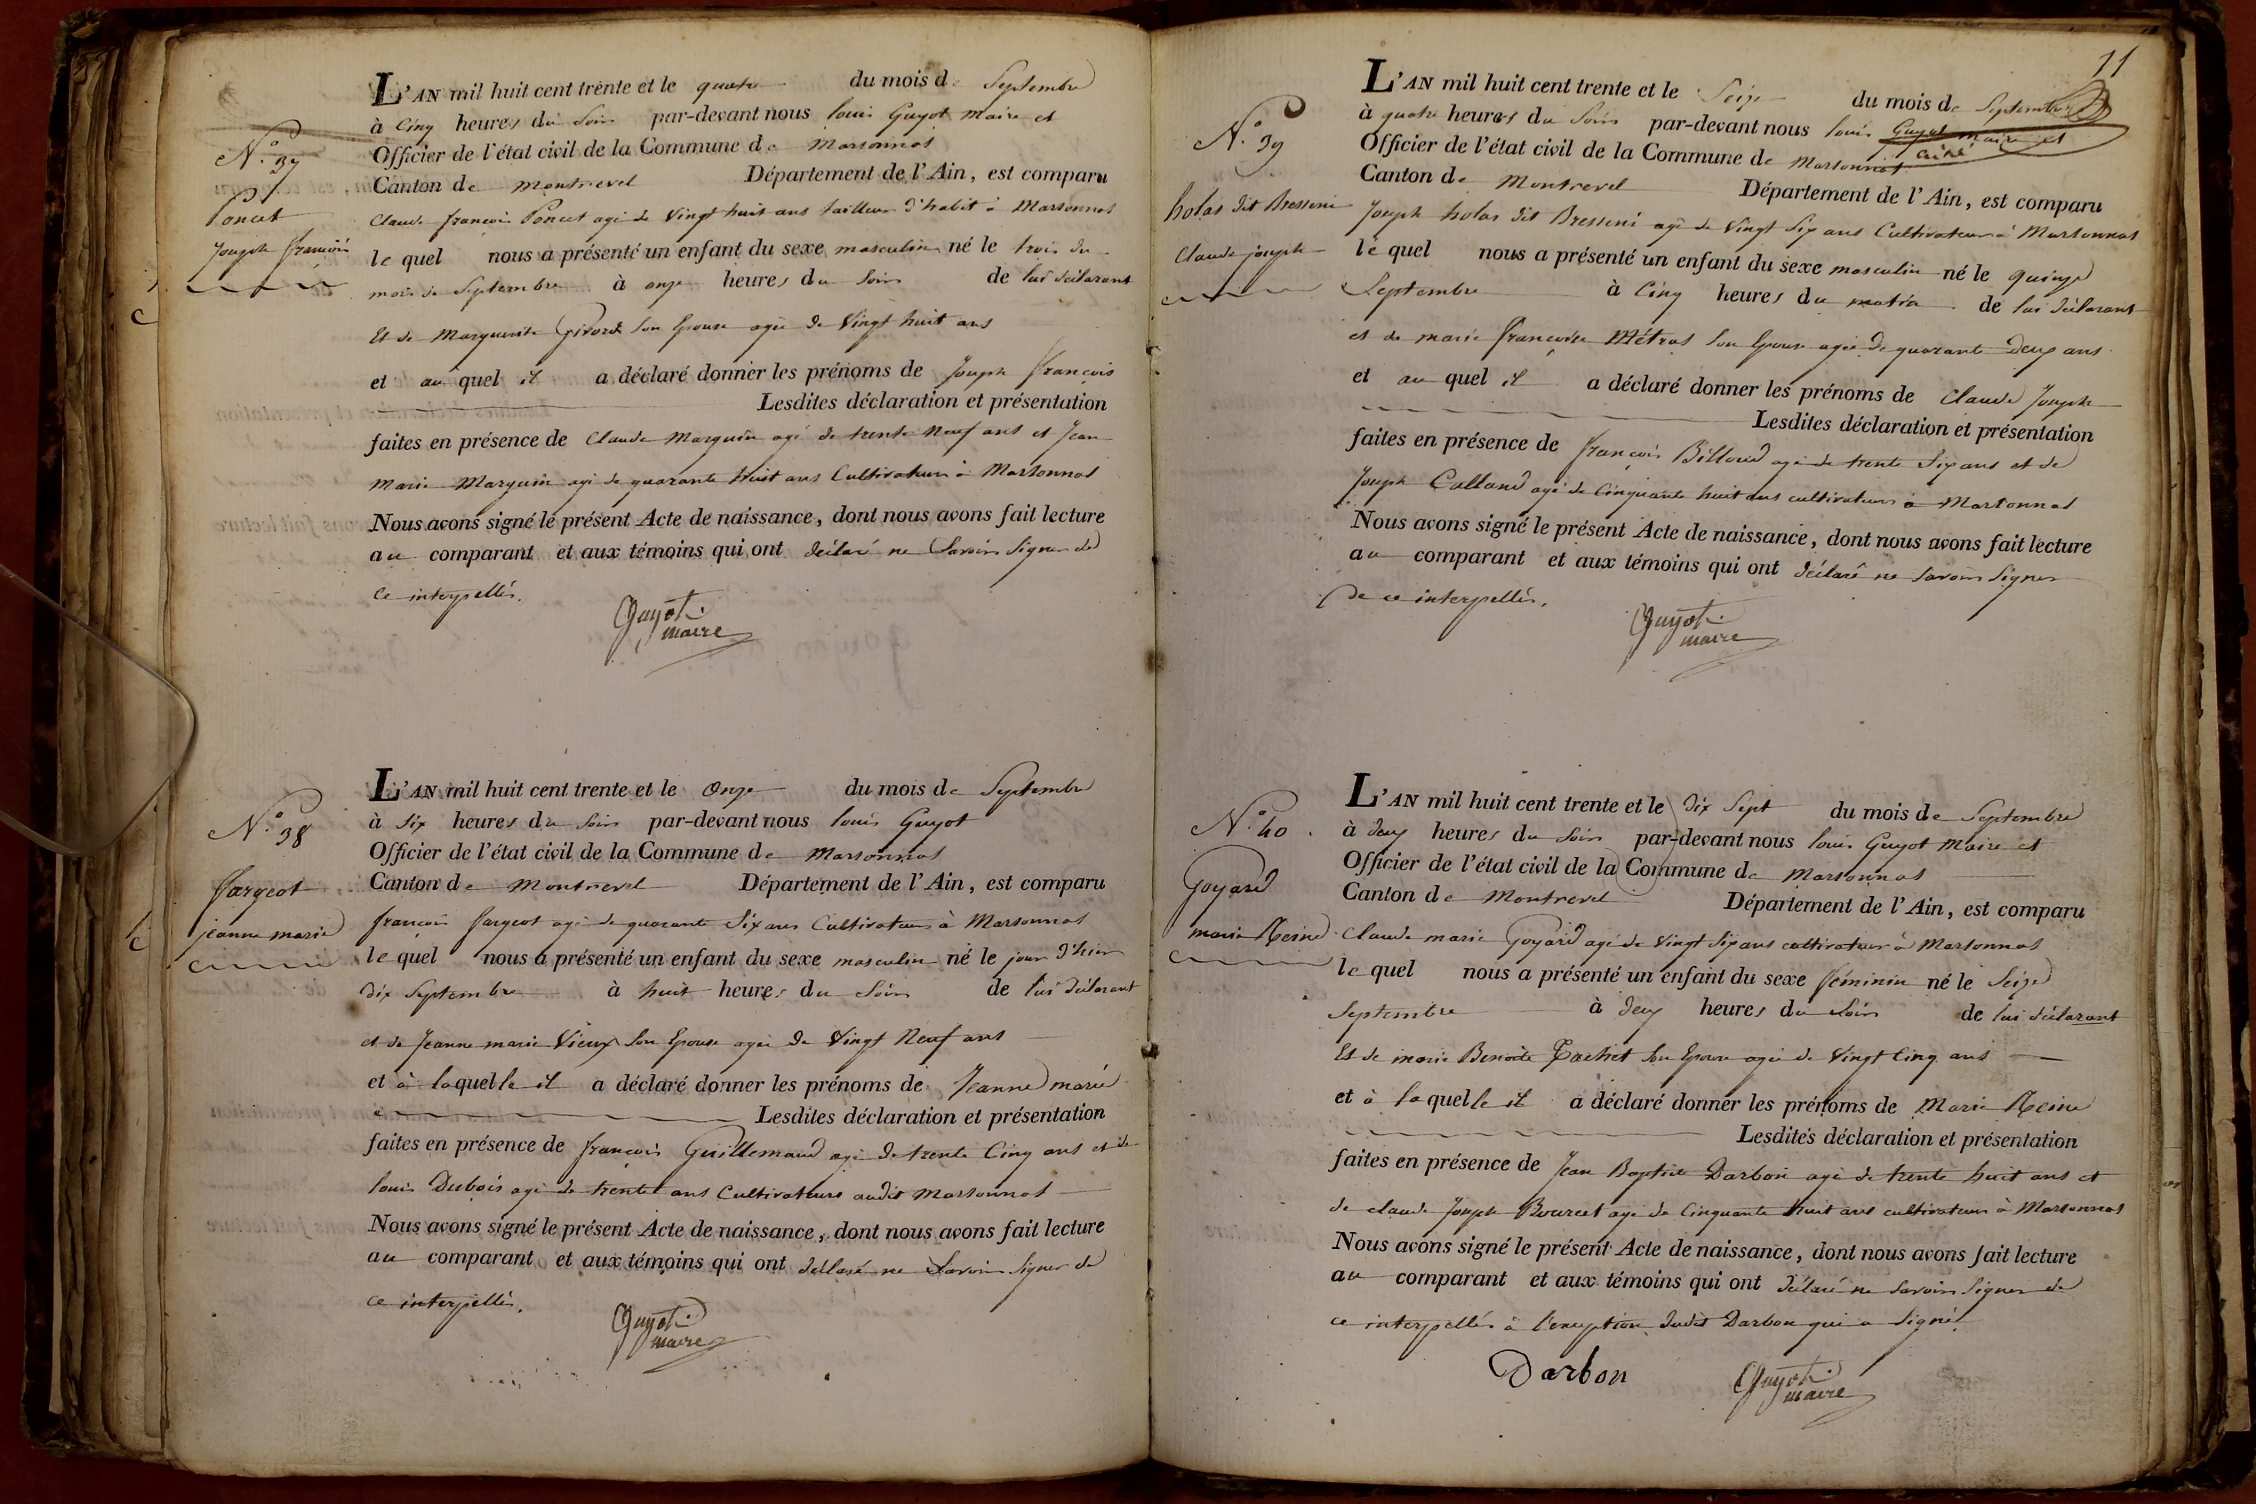 N.o 37
Poncet
Joseph françois
L'AN mil huit cent trente et le quatre du mois de Septembre
à Cinq heures du Soir par-devant nous louis Guyot Maire et
Officier de l'état civil de la Commune de Marsonnas
Canton de Montrevel Département de l'Ain, est comparu
Claude françois Poncet agé de Vingt huit ans tailleur d'habit à Marsonnas
lequel nous a présenté un enfant du sexe masculin né le trois du
mois de Septembre à onze heures du Soir de lui déclarant
Et de Marguerite Girord Son Epouse agée de Vingt huit ans
et au quel il a déclaré donner les prénoms de Joseph françois
Lesdites déclaration et présentation
faites en présence de Claude Marguin agé de trente Neuf ans et Jean
Marie Marguin agé de quarante huit ans Cultivateurs à Marsonnas
Nous avons signé le présent Acte de naissance, dont nous avons fait lecture
au comparant et aux témoins qui ont déclaré ne Savoir Signer de
ce interpellés.
Guyot
maire
N.o 38
fargeot
jeanne marie
L'AN mil huit cent trente et le Onze du mois de Septembre
à Six heures du Soir par-devant nous louis Guyot
Officier de l'état civil de la Commune de Marsonnas
Canton de Montrevel Département de l'Ain, est comparu
françois fargeot agé de quarante Six ans Cultivateur à Marsonnas
lequel nous a présenté un enfant du sexe masculin né le jour d'hier
dix Septembre à huit heures du Soir de lui déclarant
et de Jeanne marie Vieux Son Epouse agée de Vingt Neuf ans
et à laquelle il a déclaré donner les prénoms de Jeanne marie
Lesdites déclaration et présentation
faites en présence de françois Guillemaud agé de trente Cinq ans et de
louis Dubois agé de trente ans Cultivateurs audit Marsonnas
Nous avons signé le présent Acte de naissance, dont nous avons fait lecture
au comparant et aux témoins qui ont déclaré ne Savoir Signer de
ce interpellés.
Guyot
maire
11
N.o 39
holas dit Bressené
Claude joseph
L'AN mil huit cent trente et le Seize du mois de Septembre
à quatre heures du Soir par-devant nous louis Guyot Maire et
Officier de l'état civil de la Commune de Marsonnas
Canton de Montrevel Département de l'Ain, est comparu
Joseph holas dit Bressené agé de Vingt Six ans Cultivateur à Marsonnas
lequel nous a présenté un enfant du sexe masculin né le quinze
Septembre à Cinq heures du matin de lui déclarant
et de marie françoise Métras Son Epouse agée de quarante Deux ans
et au quel il a déclaré donner les prénoms de Claude Joseph
Lesdites déclaration et présentation
faites en présence de françois Billoud agé de trente Six ans et de
Joseph Calland agé de Cinquante huit ans cultivateurs à Marsonnas
Nous avons signé le présent Acte de naissance, dont nous avons fait lecture
au comparant et aux témoins qui ont déclaré ne Savoir Signer
de ce interpellés.
Guyot
maire
N.o 40
Goyard
marie Reine
L'AN mil huit cent trente et le dix Sept du mois de Septembre
à deux heures du Soir par-devant nous louis Guyot Maire et
Officier de l'état civil de la Commune de Marsonnas
Canton de Montrevel Département de l'Ain, est comparu
Claude marie Goyard agé de Vingt Six ans cultivateur à Marsonnas
lequel nous a présenté un enfant du sexe féminin né le Seize
Septembre à deux heures du Soir de lui déclarant
Et de marie Benoite Pachet Son Epouse agée de Vingt Cinq ans
et à laquelle il a déclaré donner les prénoms de Marie Reine
Lesdites déclaration et présentation
faites en présence de Jean Baptiste Darbon agé de trente huit ans et
de claude Joseph Bourcet agé de Cinquante huit ans cultivateurs à Marsonnas
Nous avons signé le présent Acte de naissance, dont nous avons fait lecture
au comparant et aux témoins qui ont déclaré ne Savoir Signer de
ce interpellés à l'exception dudit Darbon qui a Signé.
Darbon Guyot
maire